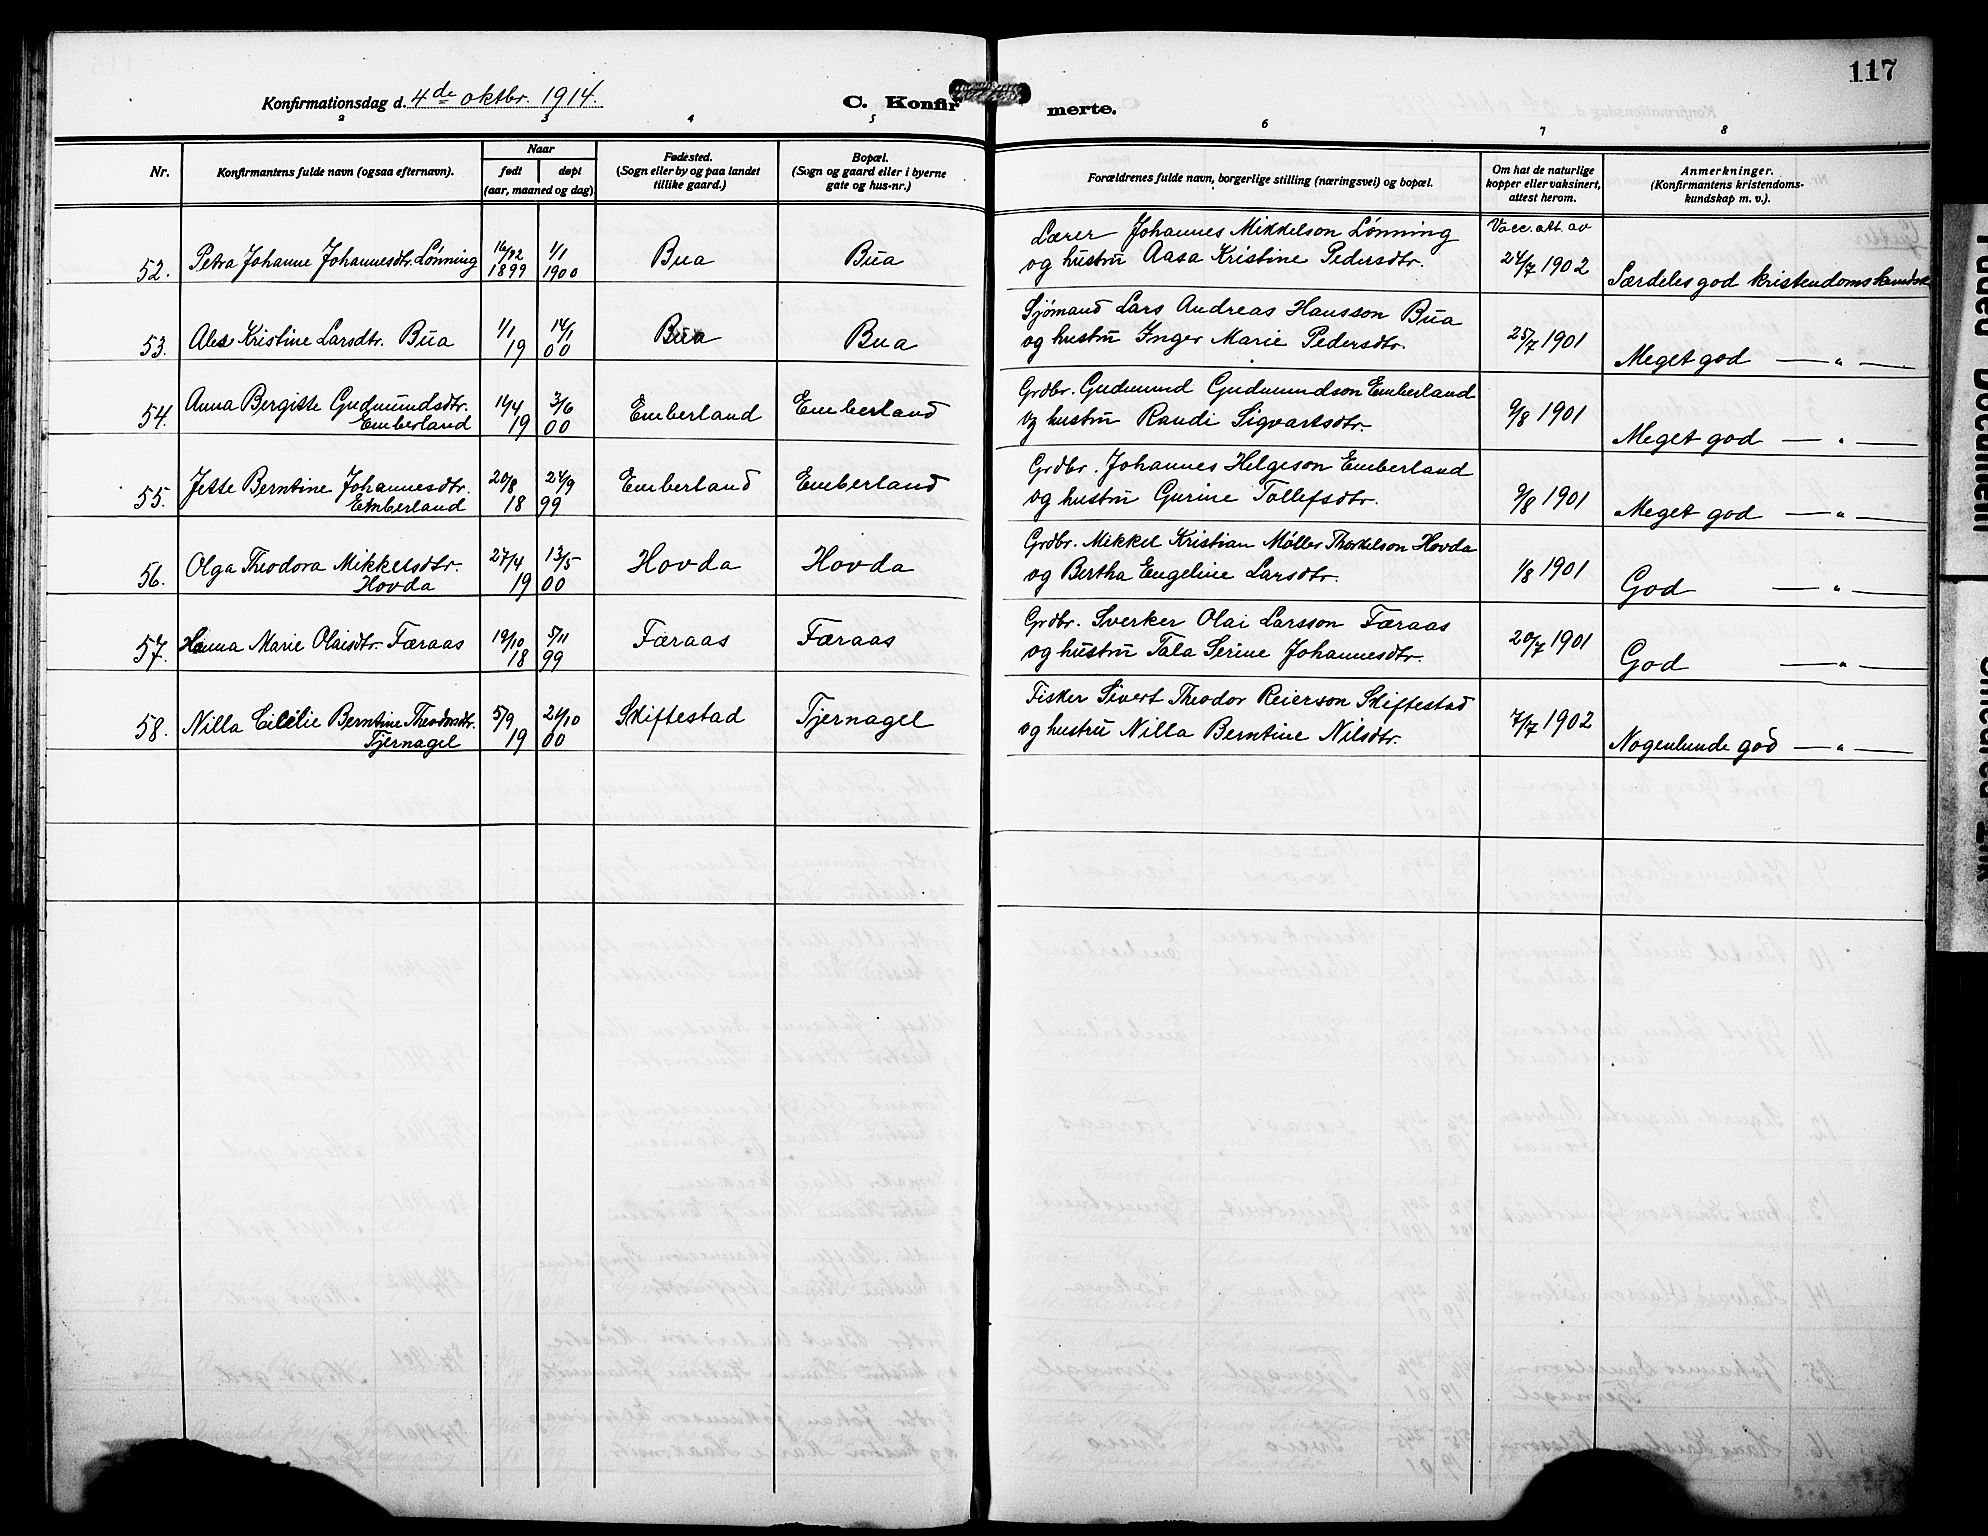 117
Konfirmationsdag d. 4de oktbr. 1914.
C. Konfir merte.
2 3 4 5 6 7 8
Nr.
Konfirmantens fulde navn (ogsaa efternavn).
Naar
født døpt
(aar, maaned og dag).
Fødested.
(Sogn eller by og paa landet
tillike gaard.)
Bopæl.
(Sogn og gaard eller i byerne
gate og hus-nr.)
Forældrenes fulde navn, borgerlige stilling (næringsvei) og bopæl.
Om hat de naturlige
kopper eller vaksinert,
attest herom.
Anmerkninger.
(Konfirmantens kristendoms-
kundskap m. v.).
Lærer Johannes Mikkelson Lønning Vacc. att. av
52. Petra Johanne Johannesdtr. Lønning 16/12 1899 1/1 1900 Bua Bua og hustru Aasa Kristine Pedersdtr. 24/7 1902 Særdeles god kristendomskundsk
Sjømand Lars Andreas Hansson Bua
53. Kristine Larsdtr. Bua 1/1 19 14/1 00 Bua Bua og hustru Inger Marie Pedersdtr. 25/7 1901 Meget god — " —
54. Anna Bergitte Gudmundsdtr. 11/4 3/6 Emberland Emberland Grdbr. Gudmund Gudmundson Emberland 9/8 1901
Emberland 19 00 og hustru Randi Sigvartsdtr. Meget god — " —
55. Jette Berntine Johannesdtr. 20/8 24/9 Emberland Emberland Grdbr. Johannes Helgeson Emberland
Emberland 18 99 og hustru Gurine Tollefsdtr. 9/8 1901 Meget god — " —
56. Olga Theodora Mikkelsdtr. 27/4 13/5 Hovda Hovda Grdbr. Mikkel Kristian Møller Thorkelson Hovda
Hovda 19 00 og Bertha Engeline Larsdtr. 1/8 1901 God — " —
Grdbr. Sverker Olai Larsson Færaas
57. Hanna Marie Olaisdtr. Færaas 19/10 18 5/11 99 Færaas Færaas og hustru Tala Serine Johannesdtr. 20/7 1901 God — " —
58. Nilla Cicilie Berntine Theodorsdtr. 5/9 21/10 Skiftestad Tjernagel Fisker Sivert Theodor Reierson Skiftestad
Tjernagel 19 00 og hustru Nilla Berntine Nilsdtr. 7/7 1902 Nogenlunde god — " —